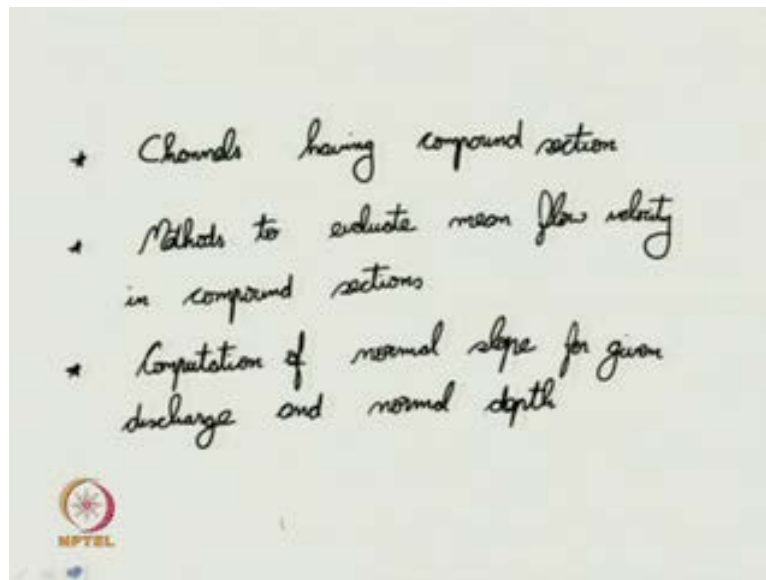 * Channels having compound section
* Methods to evaluate mean flow velocity
in compound sections
* Computation of normal slope for given
discharge and normal depth
NPTEL